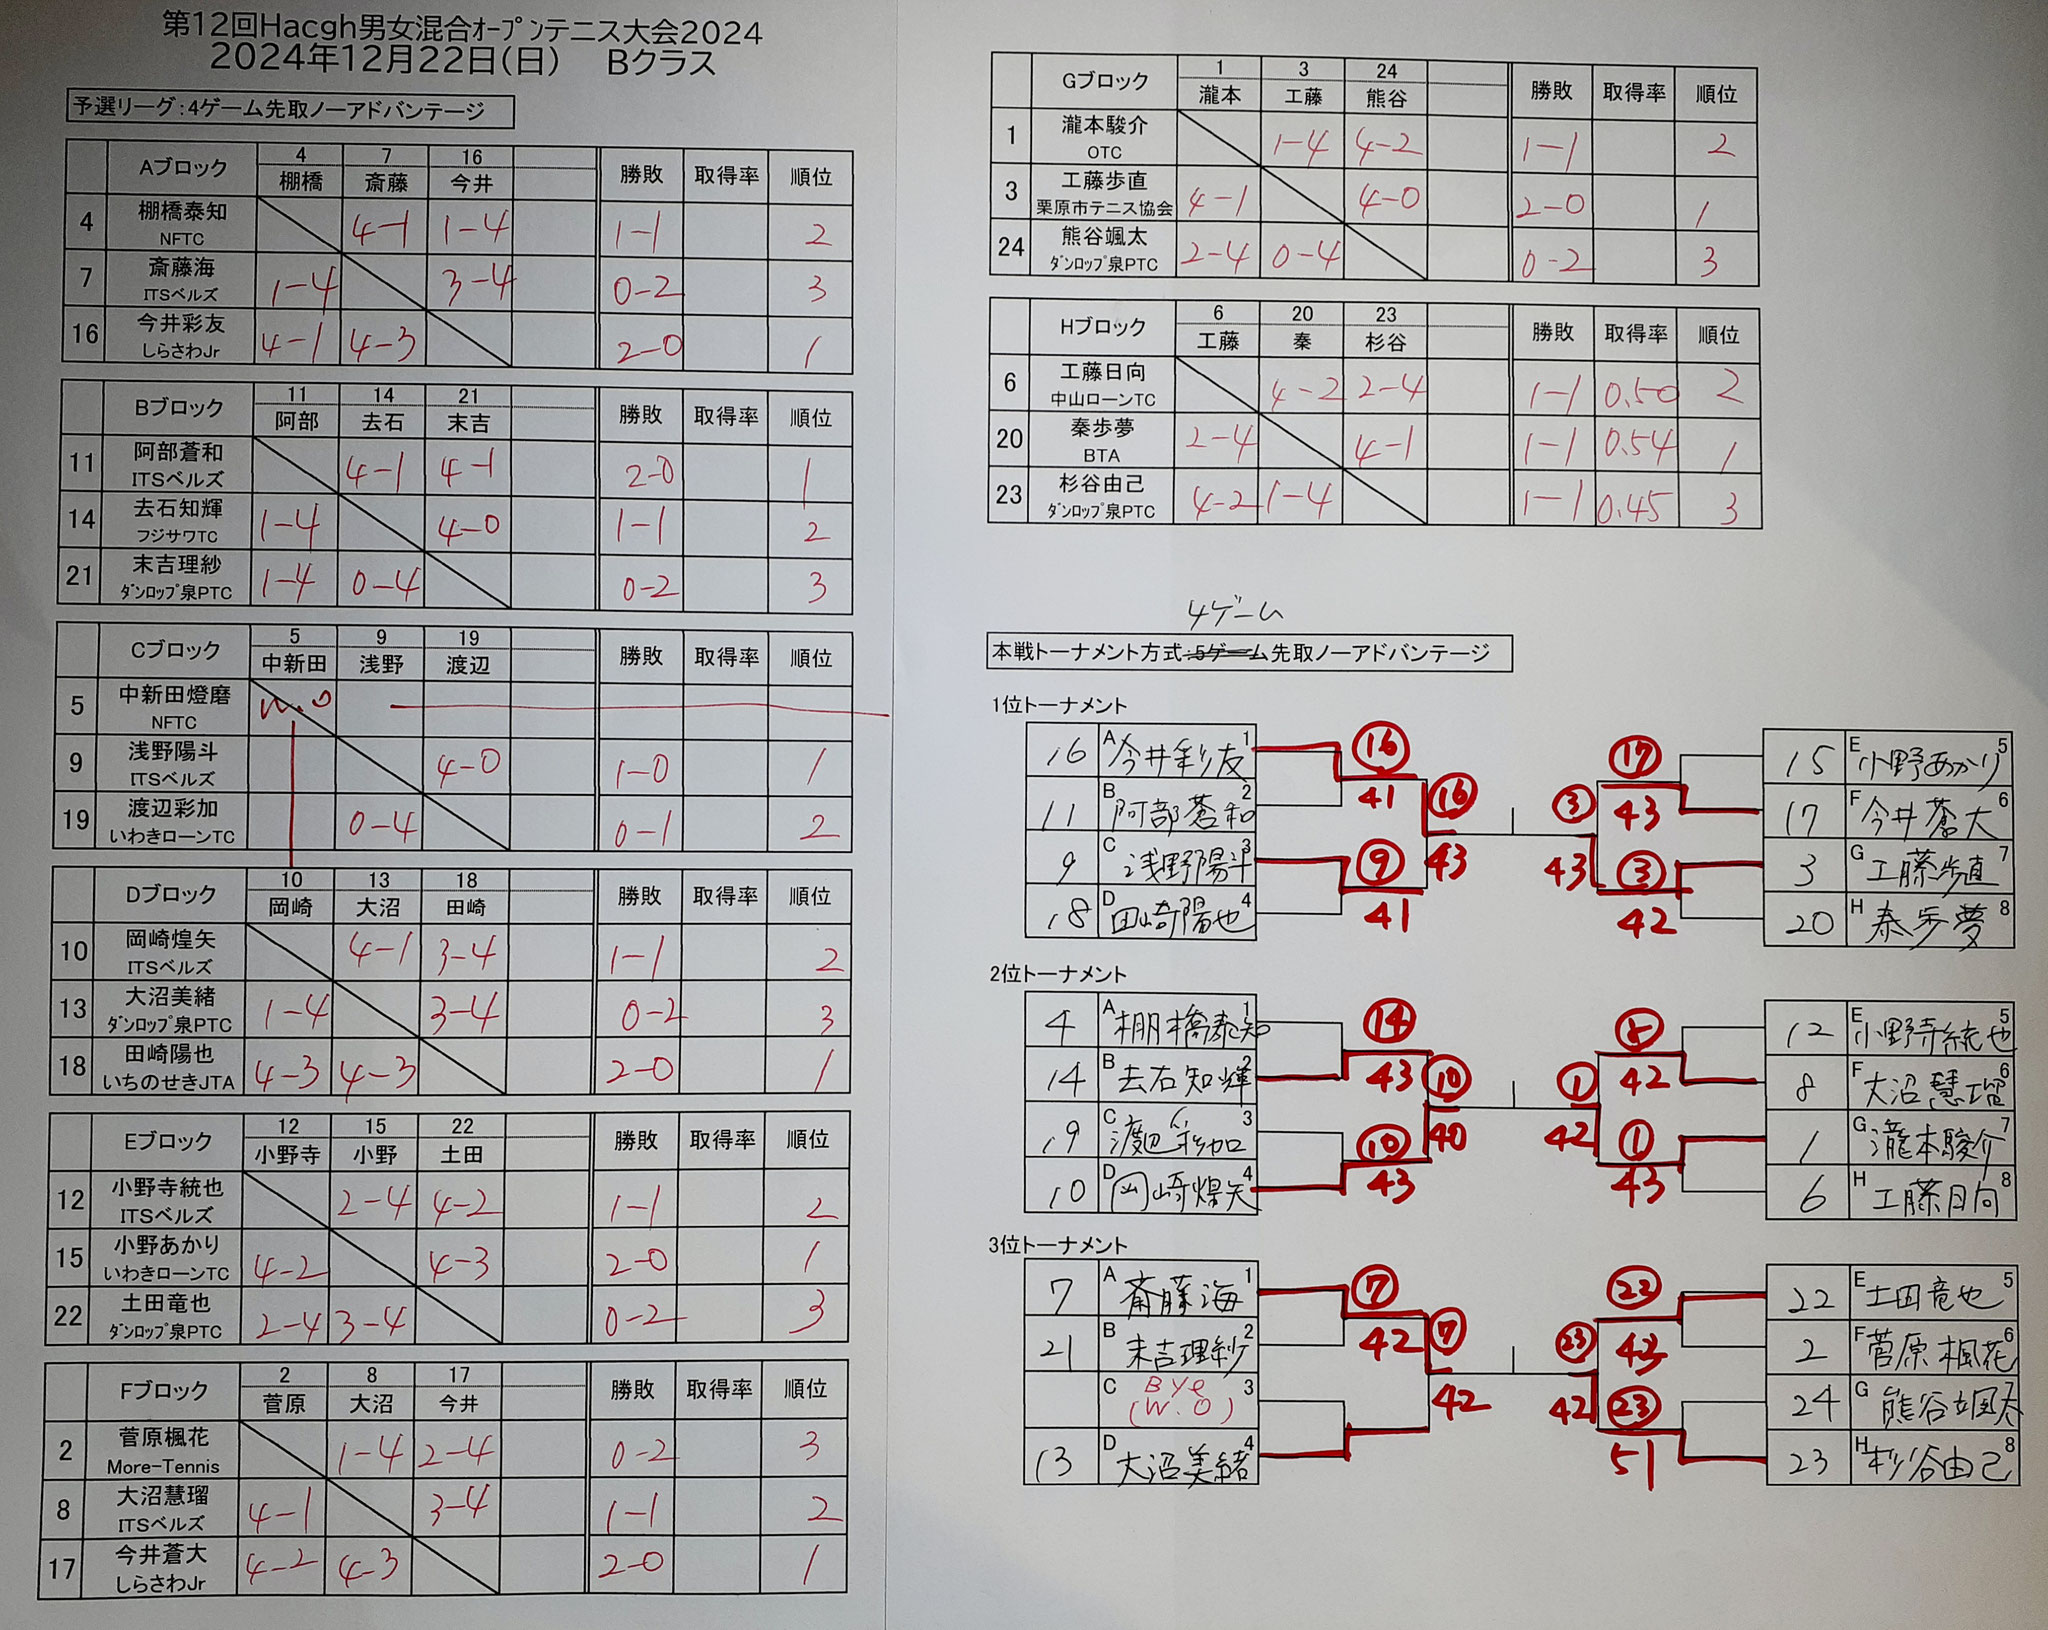 第12回Hacgh男女混合ｵｰﾌﾟﾝテニス大会2024
2024年12月22日(日) Bクラス
予選リーグ:4ゲーム先取ノーアドバンテージ
Aブロック 4 棚橋 7 斎藤 16 今井 勝敗 取得率 順位
4 棚橋泰知 NFTC 4-1 1-4 1-1 2
7 斎藤海 ITSベルズ 1-4 3-4 0-2 3
16 今井彩友 しらさわJr 4-1 4-3 2-0 1
Bブロック 11 阿部 14 去石 21 末吉 勝敗 取得率 順位
11 阿部蒼和 ITSベルズ 4-1 4-1 2-0 1
14 去石知輝 フジサワTC 1-4 4-0 1-1 2
21 末吉理紗 ﾀﾞﾝﾛｯﾌﾟ泉PTC 1-4 0-4 0-2 3
Cブロック 5 中新田 9 浅野 19 渡辺 勝敗 取得率 順位
5 中新田燈磨 NFTC W.O
9 浅野陽斗 ITSベルズ 4-0 1-0 1
19 渡辺彩加 いわきローンTC 0-4 0-1 2
Dブロック 10 岡崎 13 大沼 18 田崎 勝敗 取得率 順位
10 岡崎煌矢 ITSベルズ 4-1 3-4 1-1 2
13 大沼美緒 ﾀﾞﾝﾛｯﾌﾟ泉PTC 1-4 3-4 0-2 3
18 田崎陽也 いちのせきJTA 4-3 4-3 2-0 1
Eブロック 12 小野寺 15 小野 22 土田 勝敗 取得率 順位
12 小野寺統也 ITSベルズ 2-4 4-2 1-1 2
15 小野あかり いわきローンTC 4-2 4-3 2-0 1
22 土田竜也 ﾀﾞﾝﾛｯﾌﾟ泉PTC 2-4 3-4 0-2 3
Fブロック 2 菅原 8 大沼 17 今井 勝敗 取得率 順位
2 菅原楓花 More-Tennis 1-4 2-4 0-2 3
8 大沼慧瑠 ITSベルズ 4-1 3-4 1-1 2
17 今井蒼大 しらさわJr 4-2 4-3 2-0 1
Gブロック 1 瀧本 3 工藤 24 熊谷 勝敗 取得率 順位
1 瀧本駿介 OTC 1-4 4-2 1-1 2
3 工藤歩直 栗原市テニス協会 4-1 4-0 2-0 1
24 熊谷颯太 ﾀﾞﾝﾛｯﾌﾟ泉PTC 2-4 0-4 0-2 3
Hブロック 6 工藤 20 秦 23 杉谷 勝敗 取得率 順位
6 工藤日向 中山ローンTC 4-2 2-4 1-1 0.50 2
20 秦歩夢 BTA 2-4 4-1 1-1 0.54 1
23 杉谷由己 ﾀﾞﾝﾛｯﾌﾟ泉PTC 4-2 1-4 1-1 0.45 3
4ゲーム
本戦トーナメント方式:5ゲーム先取ノーアドバンテージ
1位トーナメント
16 A 今井彩友 1 ⑯ 41 ⑰ 43 15 E 小野あかり 5
11 B 阿部蒼和 2 ⑯ 43 ③ 43 17 F 今井蒼大 6
9 C 浅野陽斗 3 ⑨ 41 ③ 42 3 G 工藤歩直 7
18 D 田崎陽也 4 20 H 秦歩夢 8
2位トーナメント
4 A 棚橋泰知 1 ⑭ 43 ⑧ 42 12 E 小野寺統也 5
14 B 去石知輝 2 ⑩ 40 ① 42 8 F 大沼慧瑠 6
19 C 渡辺彩加 3 ⑩ 43 ① 43 1 G 瀧本駿介 7
10 D 岡崎煌矢 4 6 H 工藤日向 8
3位トーナメント
7 A 斎藤海 1 ⑦ 42 ㉒ 43 22 E 土田竜也 5
21 B 末吉理紗 2 ⑦ 42 ㉓ 42 2 F 菅原楓花 6
C Bye (W.O) 3 ㉓ 51 24 G 熊谷颯太 7
13 D 大沼美緒 4 23 H 杉谷由己 8